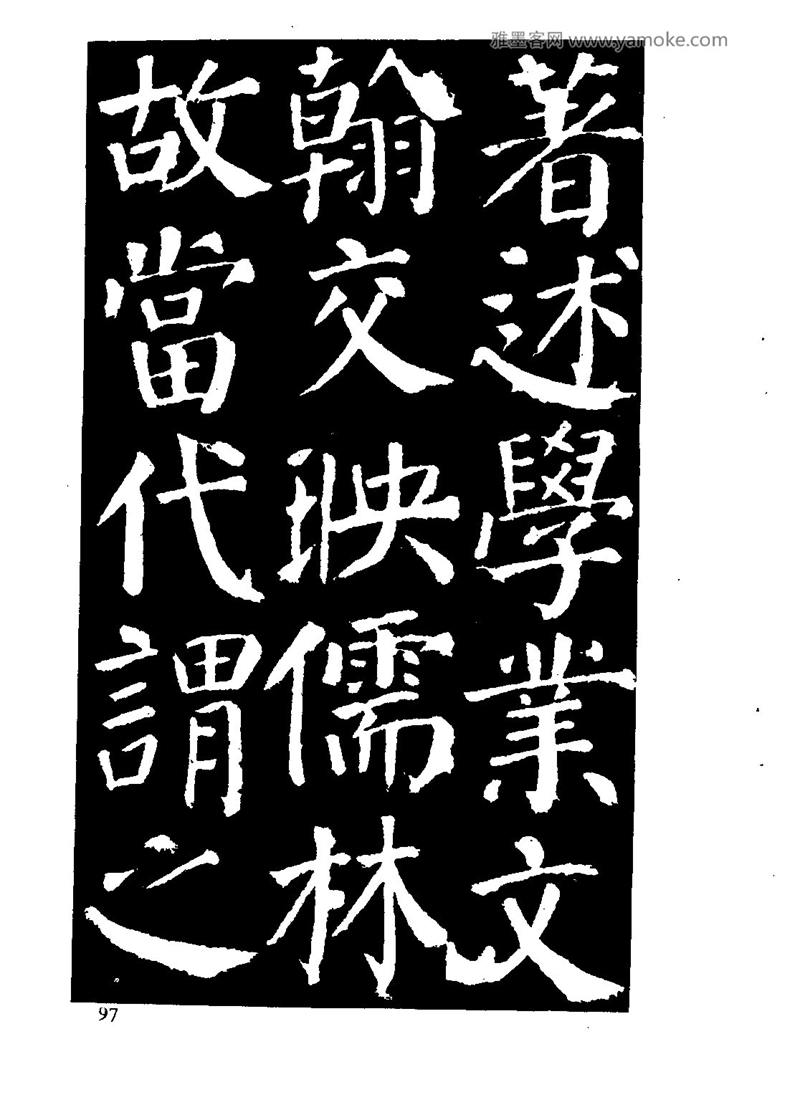 雅墨客网 www.yamoke.com
著述學業文
翰交映儒林
故當代謂之
97